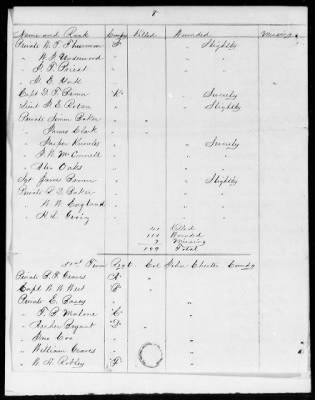 8
Name and Rank Compy Killed Wounded Missing
Private W. T. Thurman F " Slightly
" W. J. Underwood " " "
" J. T. Priest " " "
" M. E. York " " "
Capt D. F. Penn K " Severely
Lieut H. E. Rolan " " Slightly
Private Simon Baker " " "
" James Clark " " "
" Jasper Knowles " " Severely
" J. W. McConnell " " "
" Alex Oaks " " "
Sgt James Penn " " Slightly
Private R. D. Baker " " "
" W. W. England " " "
" H. L. Craig " "
41 Killed
111 Wounded
7 Missing
159 Total
51st Tenn Regt Col John Chester Comdg
Private B. F. Graves A "
Capt W. W. West B "
Private E. Bowes " "
" T. B. Malone C "
" Archer Bryant D "
" Cox " "
" William Graves " "
" W. H. Robley F "